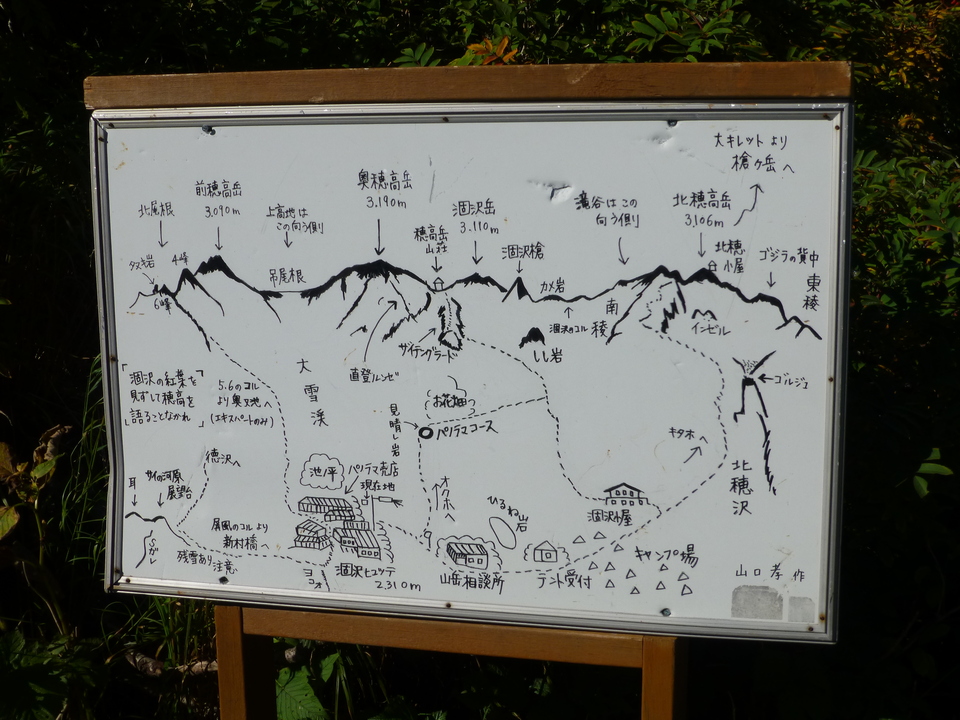 大キレットより
槍ヶ岳へ
奥穂高岳
3.190m
前穂高岳
3.090m
北尾根
上高地は
この向う側
涸沢岳
3.110m
滝谷はこの
向う側
北穂高岳
3.106m
穂高岳
山荘
涸沢槍
北穂
小屋
ゴジラの背中
東稜
タヌキ岩
4峰
6峰
吊尾根
カメ岩
涸沢のコル
南稜
インゼル
ザイテングラード
しし岩
直登ルンゼ
大雪渓
ゴルジュ
「涸沢の紅葉を
見ずして穂高を
語ることなかれ」
5.6のコル
より奥又地へ
(エキスパートのみ)
お花畑
見晴し岩
パノラマコース
キタホへ
北穂沢
徳沢へ
池ノ平
パノラマ売店
現在地
オクホへ
耳
サイの河原
展望台
ひるね岩
涸沢小屋
屏風のコルより
新村橋へ
Sガレ
残雪あり注意
涸沢ヒュッテ
2.310m
山岳相談所
テント受付
キャンプ場
山口孝作